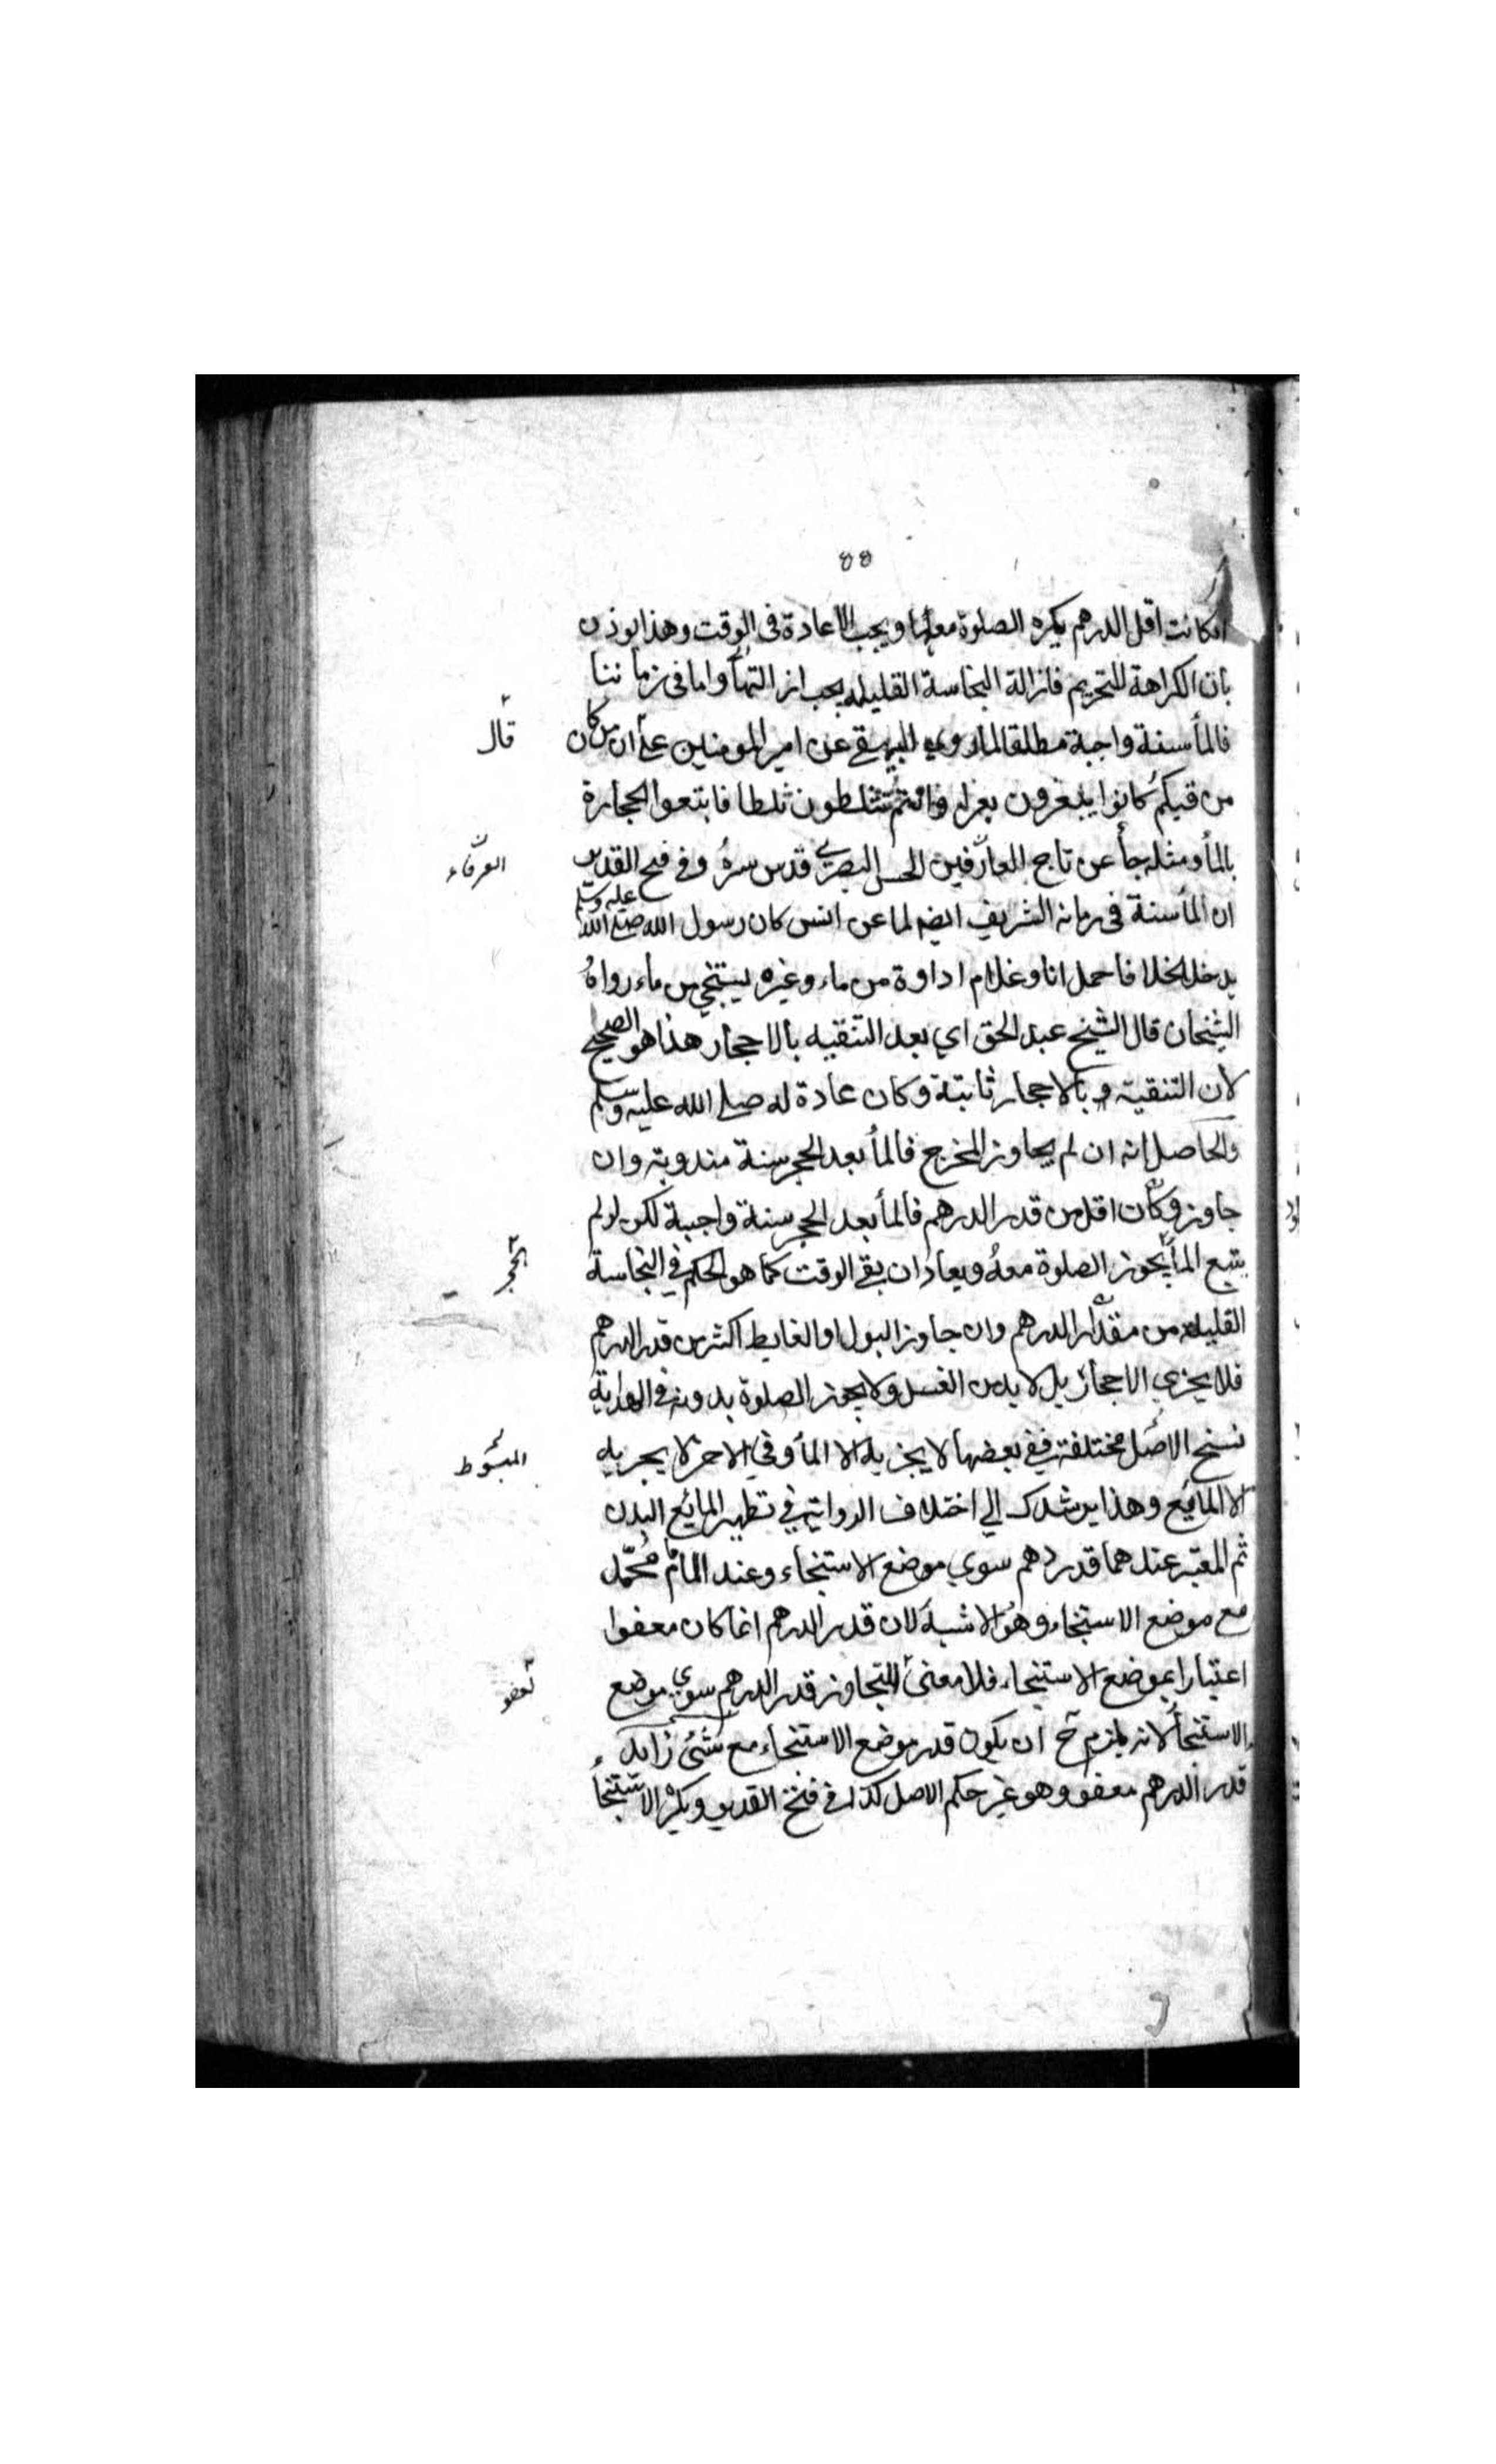 ٥٥
انكانت اقل الدرهم يكره الصلوة معها ويجب الاعادة فى الوقت وهذا يوذن
بان الكراهة للتحريم فازالة النجاسة القليله يجب ازالتها واما فى زماننا
فالمأ سنة واجبة مطلقا لما روي البيهقے عن امير المومنين علے ان من كان
قال
من قبلكم كانوا يبعرون بعرا وانتم تثلطون ثلطا فابتعوا الحجارة
بالمأ ومثله جأ عن تاج العارفين الحسن البصرے قدس سره وفے فتح القدير
العرفاء
ان المأ سنة فى زمانه الشريف ايضه لما عن انس كان رسول الله صلے الله عليه وسلم
يدخل الخلا فاحمل انا وغلام اداوة من ماء وغيره ليستنجي من ماء رواه
الشيخان قال الشيخ عبد الحق اي بعد التنقيه بالاحجار هذا هو الصحيح
لان التنقية بالاحجار ثابتة وكان عادة له صلے الله عليه وسلم
والحاصل انه ان لم يجاوز المخرج فالمأ بعد الحجر سنة مندوبة وان
جاوز وكان اقل من قدر الدرهم فالمأ بعد الحجر سنة واجبة لكن لو لم
يتبع المأ يجوز الصلوة معه ويعاد ان بقے الوقت كما هو الحكم في النجاسة
الحجر
القليله من مقدار الدرهم وان جاوز البول او الغايط اكثر من قدر الدرهم
فلا يجزي الاحجار بل لا بد من الغسل ولا يجوز الصلوة بدونه فے الهداية
نسخ الاصل مختلفة ففے بعضها لا يجزيه الا المأ وفي الاخر لا يجزيه
المبسوط
الا المائع وهذا يرشدك الي اختلاف الرواية في تطهير المائع البدن
ثم المعتبر عندهما قدر درهم سوي موضع الاستنجاء وعند الامام محمد
مع موضع الاستنجاء وهو الاشبه لان قدر الدرهم انما كان معفوا
اعتبارا بموضع الاستنجاء فلا معنى للتجاوز قدر الدرهم سوي موضع
لعفو
الاستنجأ لانه يلزم ح ان يكون قدر موضع الاستنجاء مع شئ زايد
قدر الدرهم معفو وهو غير حكم الاصل كذا فے فتح القدير ويكره الاستنجأ